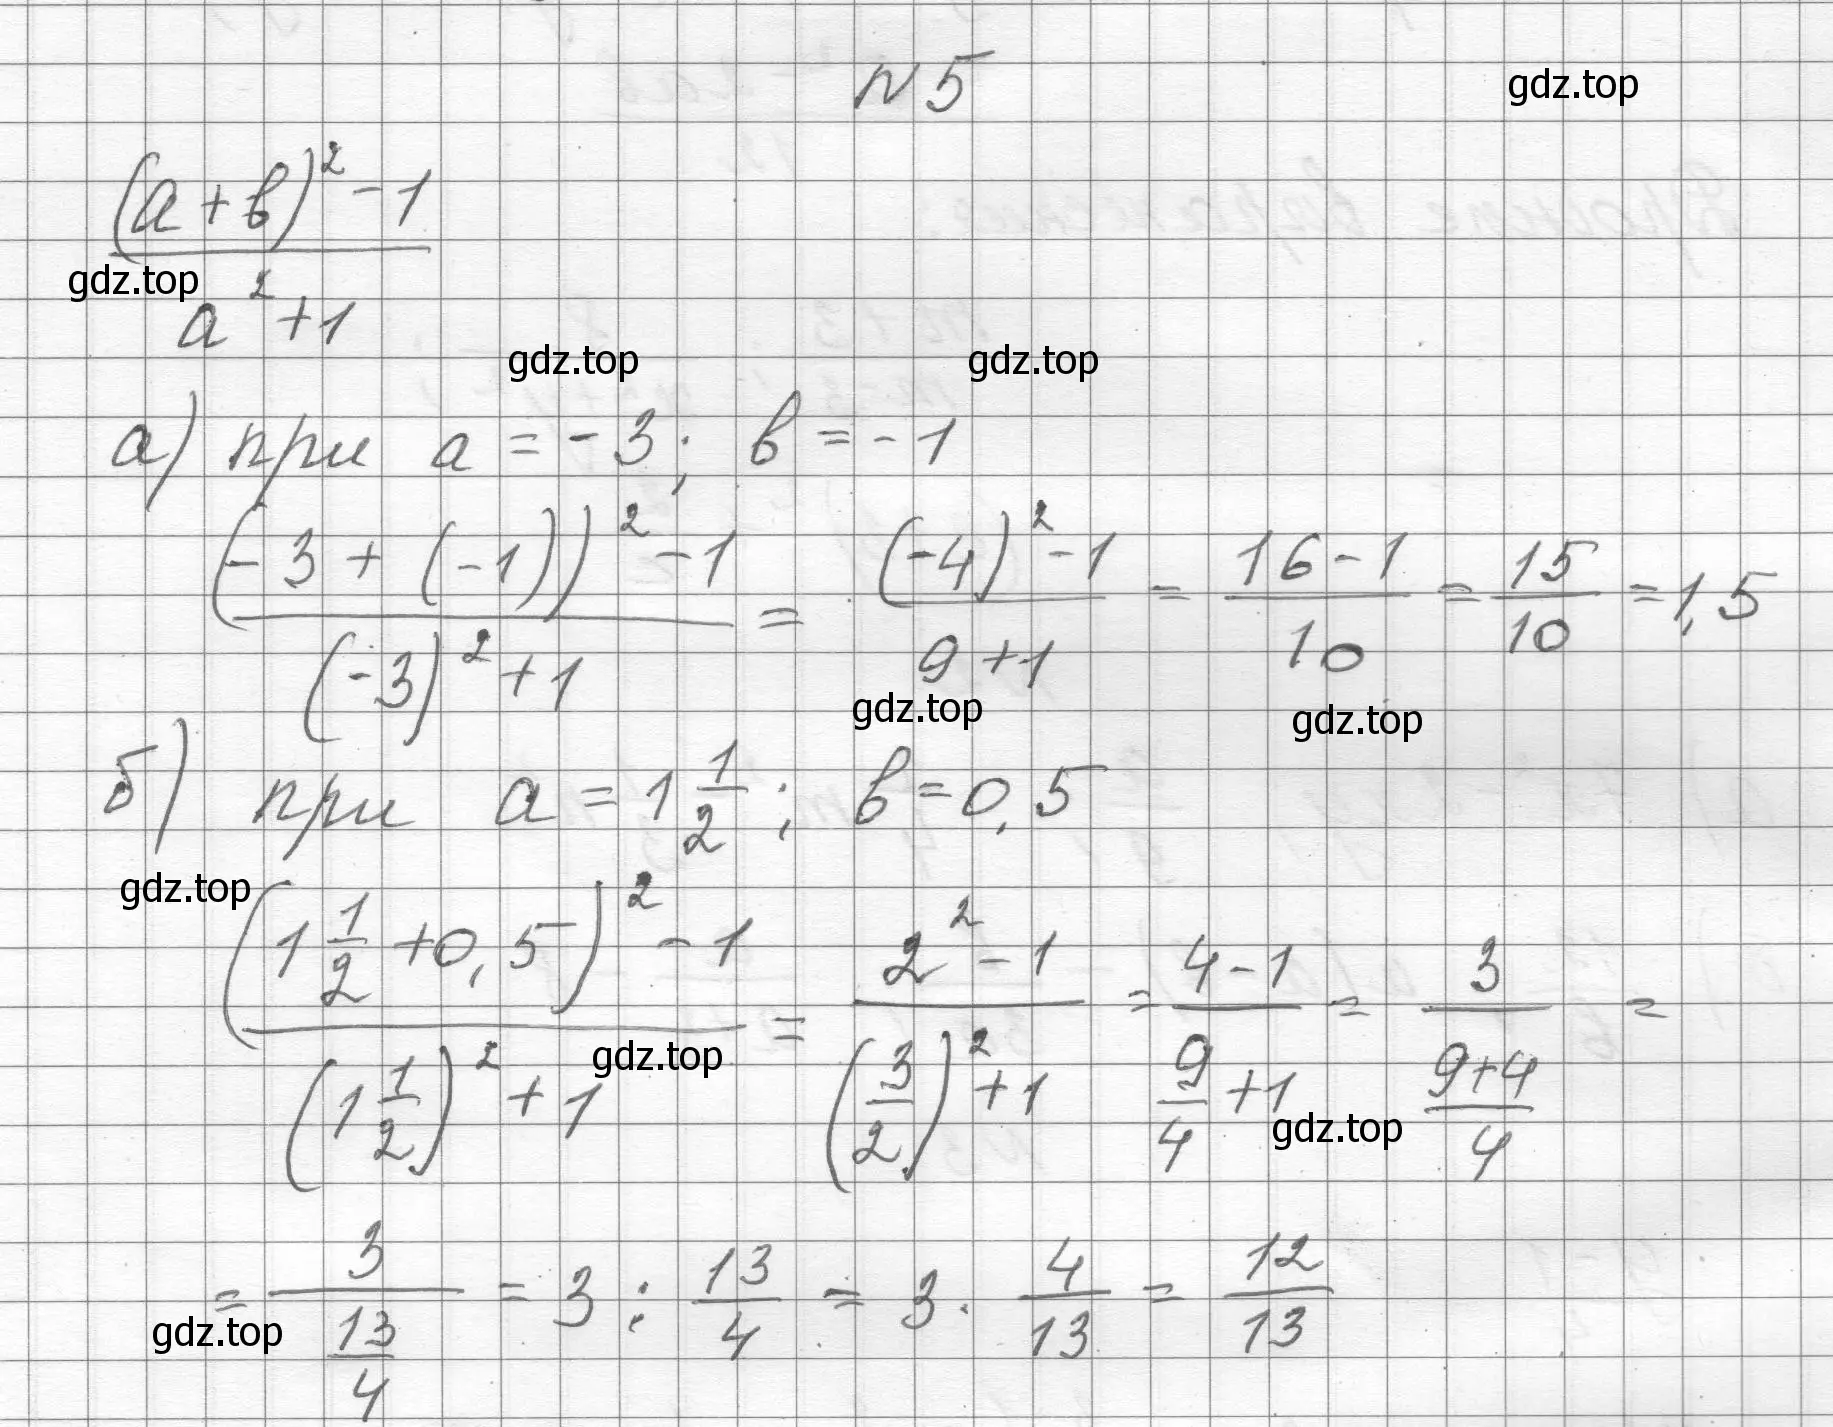 №5
gdz.top
(a+b)² - 1
gdz.top
a² + 1
gdz.top gdz.top
а) при a = -3; b = -1
(-3 + (-1))² - 1 / (-3)² + 1 = (-4)² - 1 / 9 + 1 = 16 - 1 / 10 = 15 / 10 = 1,5
gdz.top gdz.top
б) при a = 1 1/2; b = 0,5
gdz.top
(1 1/2 + 0,5)² - 1 / (1 1/2)² + 1 = 2² - 1 / (3/2)² + 1 = 4 - 1 / 9/4 + 1 = 3 / 9+4/4 =
gdz.top gdz.top
= 3 / 13/4 = 3 : 13/4 = 3 · 4/13 = 12/13
gdz.top